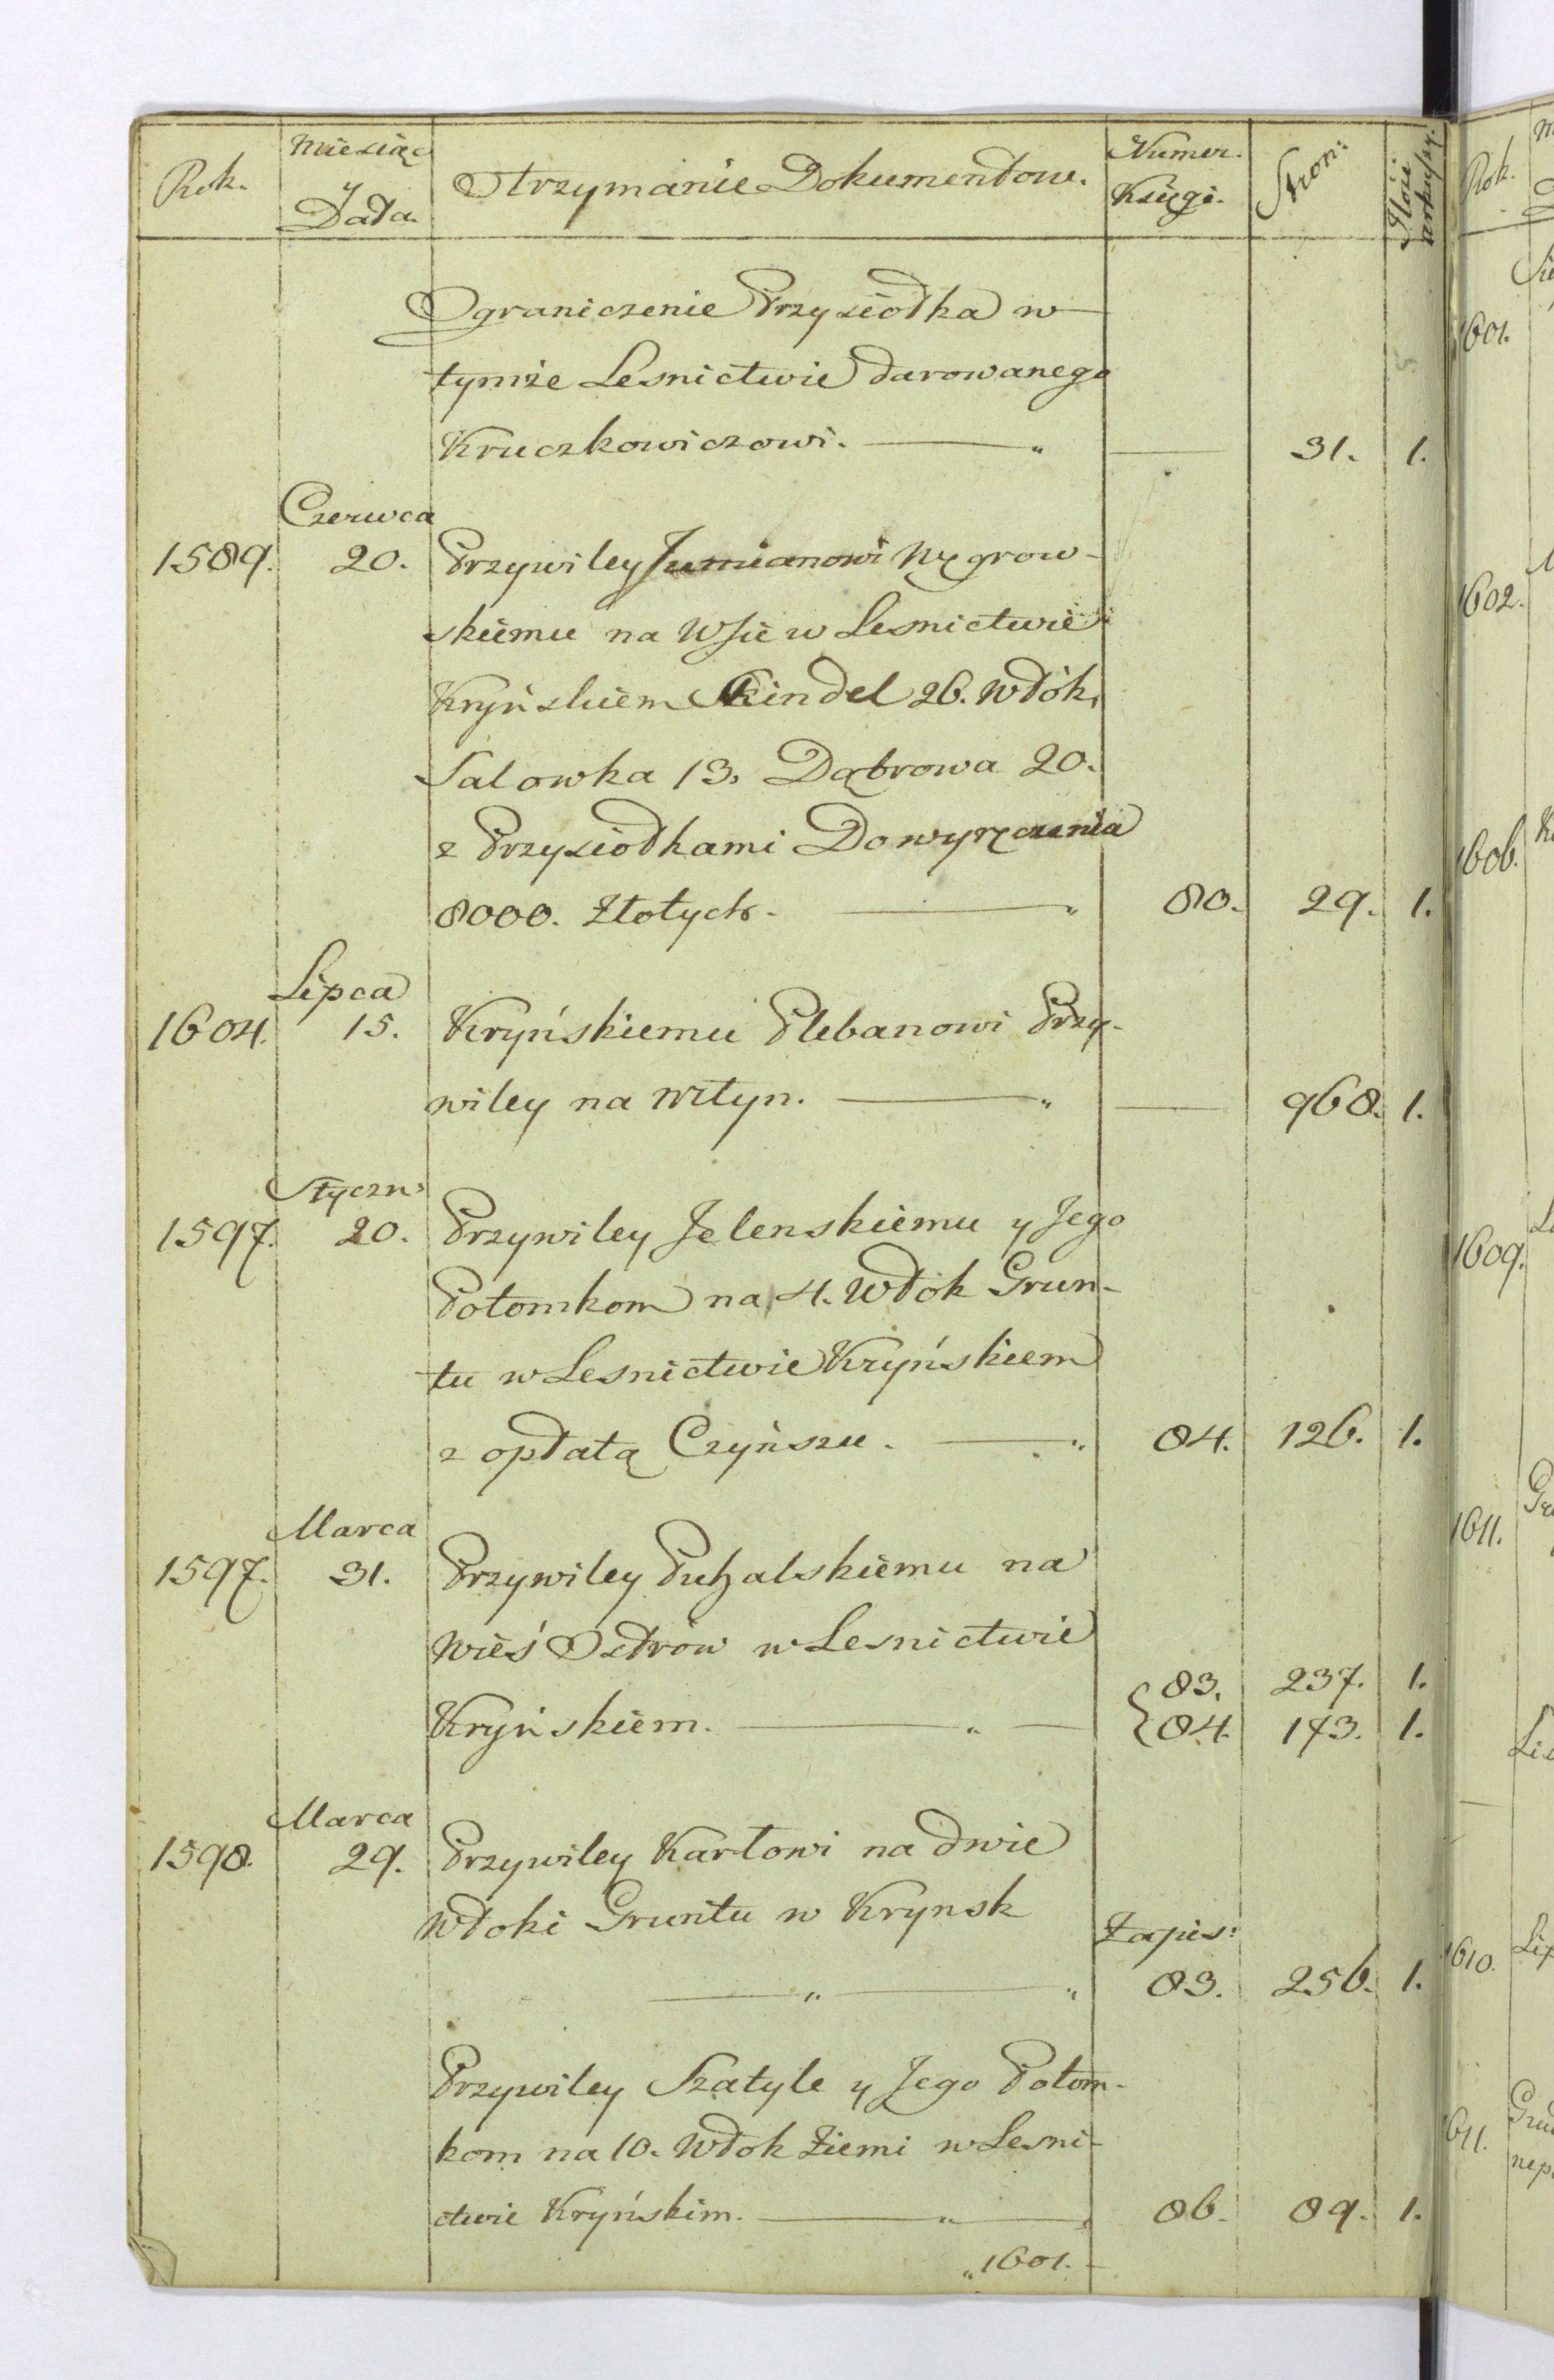 Rok. | Miesiąc y Data. | Otrzymanie Dokumentow. | Numer. Księgi. | Stron: | Ilość arkuszy.
Ograniczenie Przysiołka w
tymże Lesnictwie darowanego
Kruczkowiczowi. — „ — 31. 1.
Czerwca
1589. 20. Przywiley Węgrow-
skiemu na Wsie w Lesnictwie
Kryńskiem Kindel 26. Włok,
Salowka 13, Dąbrowa 20.
z Przysiołkami Do wyręczenia
8000. Złotych. — „ 80. 29. 1.
Lipca
1604. 15. Kryńskiemu Plebanowi Przy-
wiley na Młyn. — „ — 968. 1.
Styczn:
1597. 20. Przywiley Jelenskiemu y Jego
Potomkom na 4. Włok Grun-
tu w Lesnictwie Kryńskiem
z opłatą Czyńszu. — „ 84. 126. 1.
Marca
1597. 31. Przywiley Puhalskiemu na
Wieś Ostrów w Lesnictwie
{ 83. 237. 1.
Kryńskiem. — „ — { 84. 173. 1.
Marca
1598. 29. Przywiley Karłowi na dwie
Włoki Gruntu w Krynsk
Zapis:
— „ — „ 83. 256. 1.
Przywiley Szatyle y Jego Potom-
kom na 10. Włok Ziemi w Lesni-
ctwie Kryńskim. — „ — 86. 89. 1.
„ 1601. –
Rok.
1601.
1602.
1606.
1609.
1611.
1610.
1611.